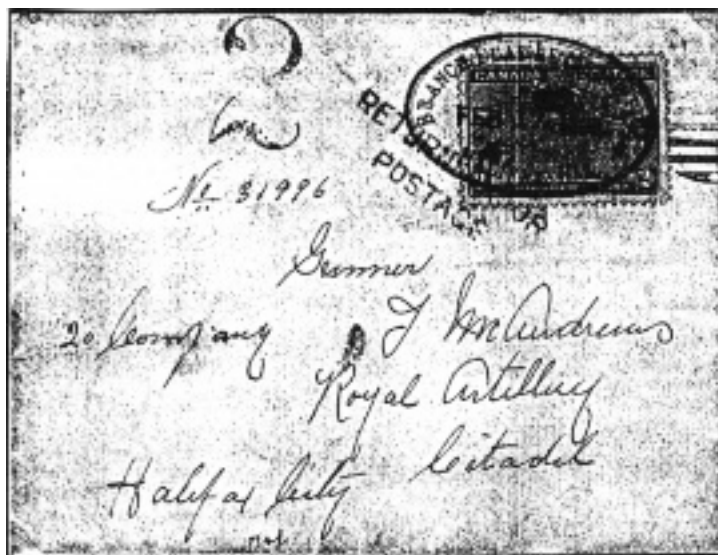 2
BRANCH
CANADA
RETURNED
FOR
POSTAGE
No. 31996
Gunner
20 Company J McAndrews
Royal Artillery
Citadel
Halifax City